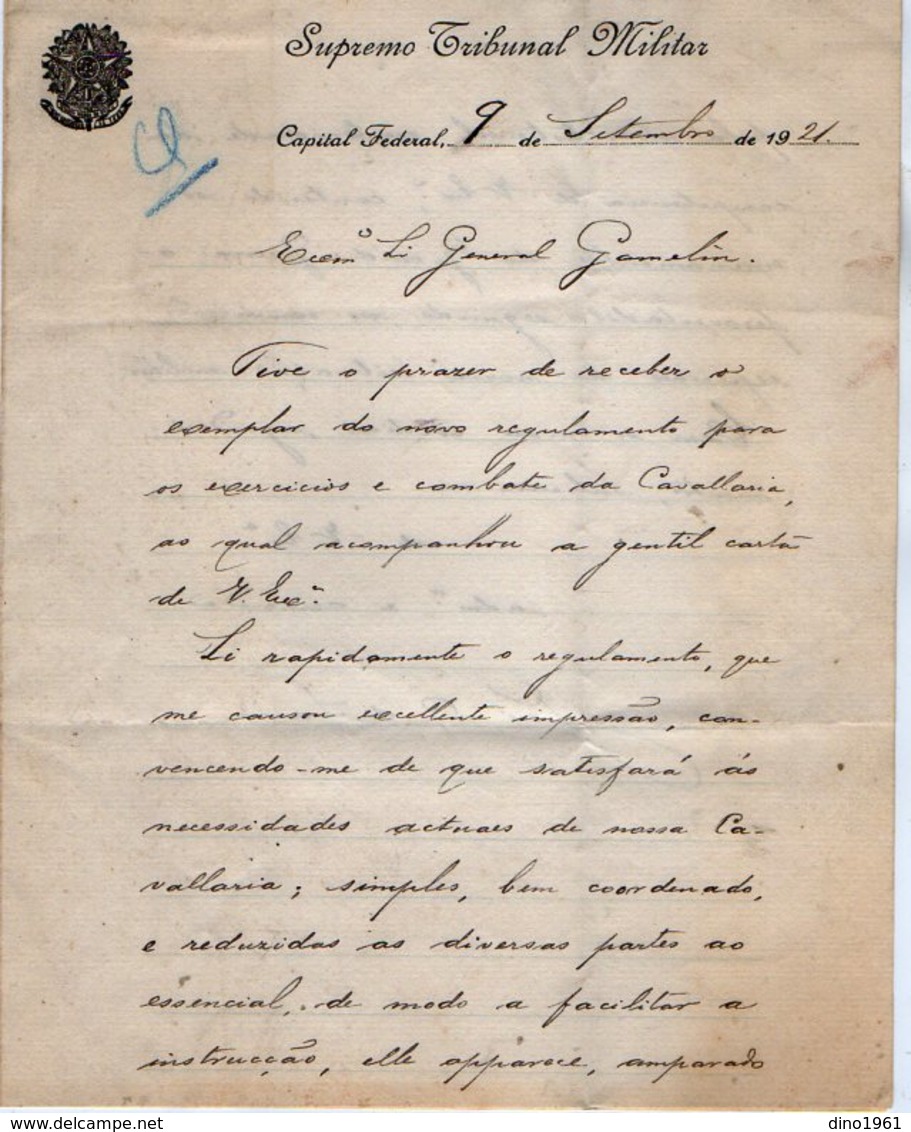 Supremo Tribunal Militar
Capital Federal, 9 de Setembro de 1921.
Excmº Sr General Gamelin.
Tive o prazer de receber o
exemplar do novo regulamento para
os exercicios e combate da Cavallaria,
ao qual acompanhou a gentil carta
de V. Excª.
Li rapidamente o regulamento, que
me causou excellente impressão, con-
vencendo-me de que satisfará ás
necessidades actuaes de nossa Ca-
vallaria; simples, bem coordenado,
e reduzidas as diversas partes ao
essencial, de modo a facilitar a
instrucção, elle apparece, amparado
dino1961